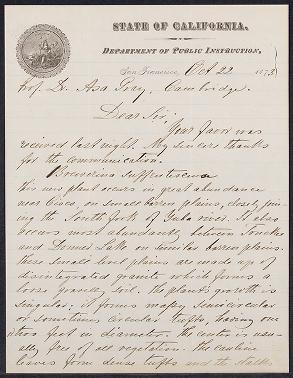 STATE OF CALIFORNIA.
DEPARTMENT OF PUBLIC INSTRUCTION,
San Francisco, Oct 22 1875
Prof. Dr. Asa Gray, Cambridge.
Dear Sir:
Your favor was
received last night. My sincere thanks
for the communication.
this new plant occurs in great abundance
near Cisco, on small barren plains, closely join-
ing the South fork of Yuba river. It also
occurs most abundantly between Truckee
and Donner Lake on similar barren plains.
these small level plains are made up of
disintegrated granite which forms a
loose gravelly soil. The plant's growth is
singular; it forms many semicircular
or sometimes circular tufts, having one
two feet in diameter. the center is usu-
ally free of all vegetation. the cauline
leaves form dense tufts and the stalks